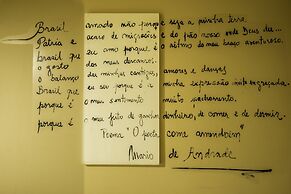 Brasil amado não porque seja a minha terra,
Pátria é acaso de migrações e do pão nosso onde Deus der...
Brasil que eu amo porque é o ritmo do meu braço aventuroso,
o gosto dos meus descansos,
o balanço das minhas cantigas, amores e danças.
Brasil que eu sou porque é a minha expressão muito engraçada,
porque é o meu sentimento muito pachorrento,
porque é o meu jeito de ganhar dinheiro, de comer e de dormir.
Poema "O poeta come amendoim"
Mario de Andrade